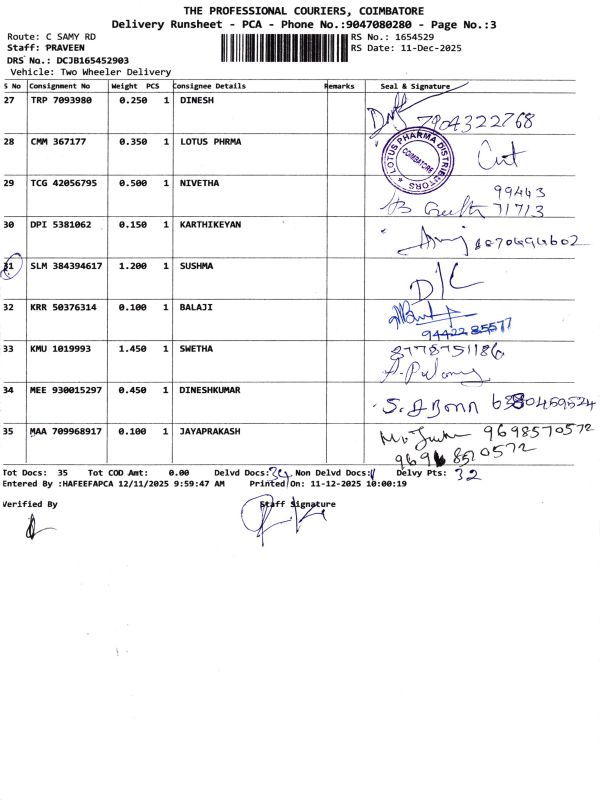 THE PROFESSIONAL COURIERS, COIMBATORE
Delivery Runsheet - PCA - Phone No.:9047080280 - Page No.:3
Route: C SAMY RD
RS No.: 1654529
Staff: PRAVEEN
RS Date: 11-Dec-2025
DRS No.: DCJB165452903
Vehicle: Two Wheeler Delivery
S No Consignment No Weight PCS Consignee Details Remarks Seal & Signature
27 TRP 7093980 0.250 1 DINESH
7904322768
28 CMM 367177 0.350 1 LOTUS PHRMA
LOTUS PHARMA DISTRIBUTORS
COIMBATORE
29 TCG 42056795 0.500 1 NIVETHA
99443
71713
30 DPI 5381062 0.150 1 KARTHIKEYAN
8870494602
31 SLM 384394617 1.200 1 SUSHMA
D/C
32 KRR 50376314 0.100 1 BALAJI
9442285577
33 KMU 1019993 1.450 1 SWETHA
8778751186
34 MEE 930015297 0.450 1 DINESHKUMAR
35 MAA 709968917 0.100 1 JAYAPRAKASH
9698570572
Tot Docs: 35 Tot COD Amt: 0.00 Delvd Docs: 34 Non Delvd Docs: 1 Delvy Pts: 32
Entered By :HAFEEFAPCA 12/11/2025 9:59:47 AM Printed On: 11-12-2025 10:00:19
Verified By
Staff Signature